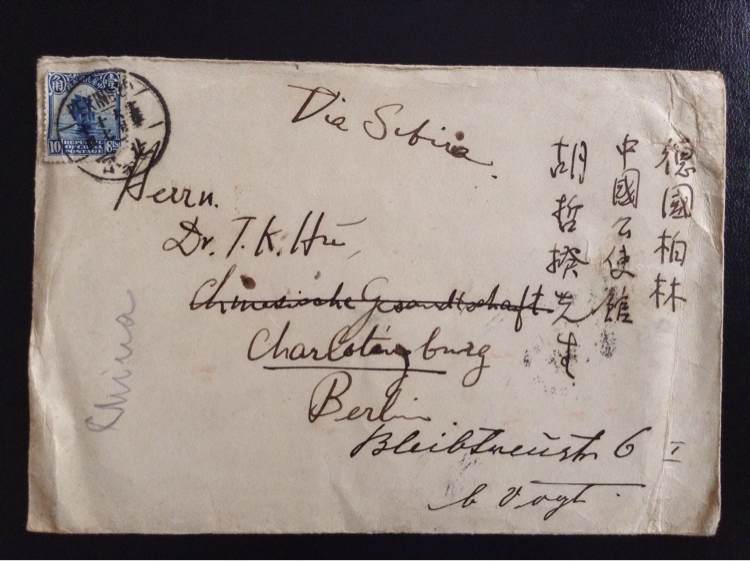 PEKING
10
REPUBLIC
OF CHINA
POSTAGE
Via Sibiria.
Herrn.
Dr. T. K. Hu,
Chinesische Gesandtschaft.
Charlottenburg
Berlin
Bleibtreustr 6 I
b Vogt.
China
德國柏林
中國公使館
胡哲揆先生